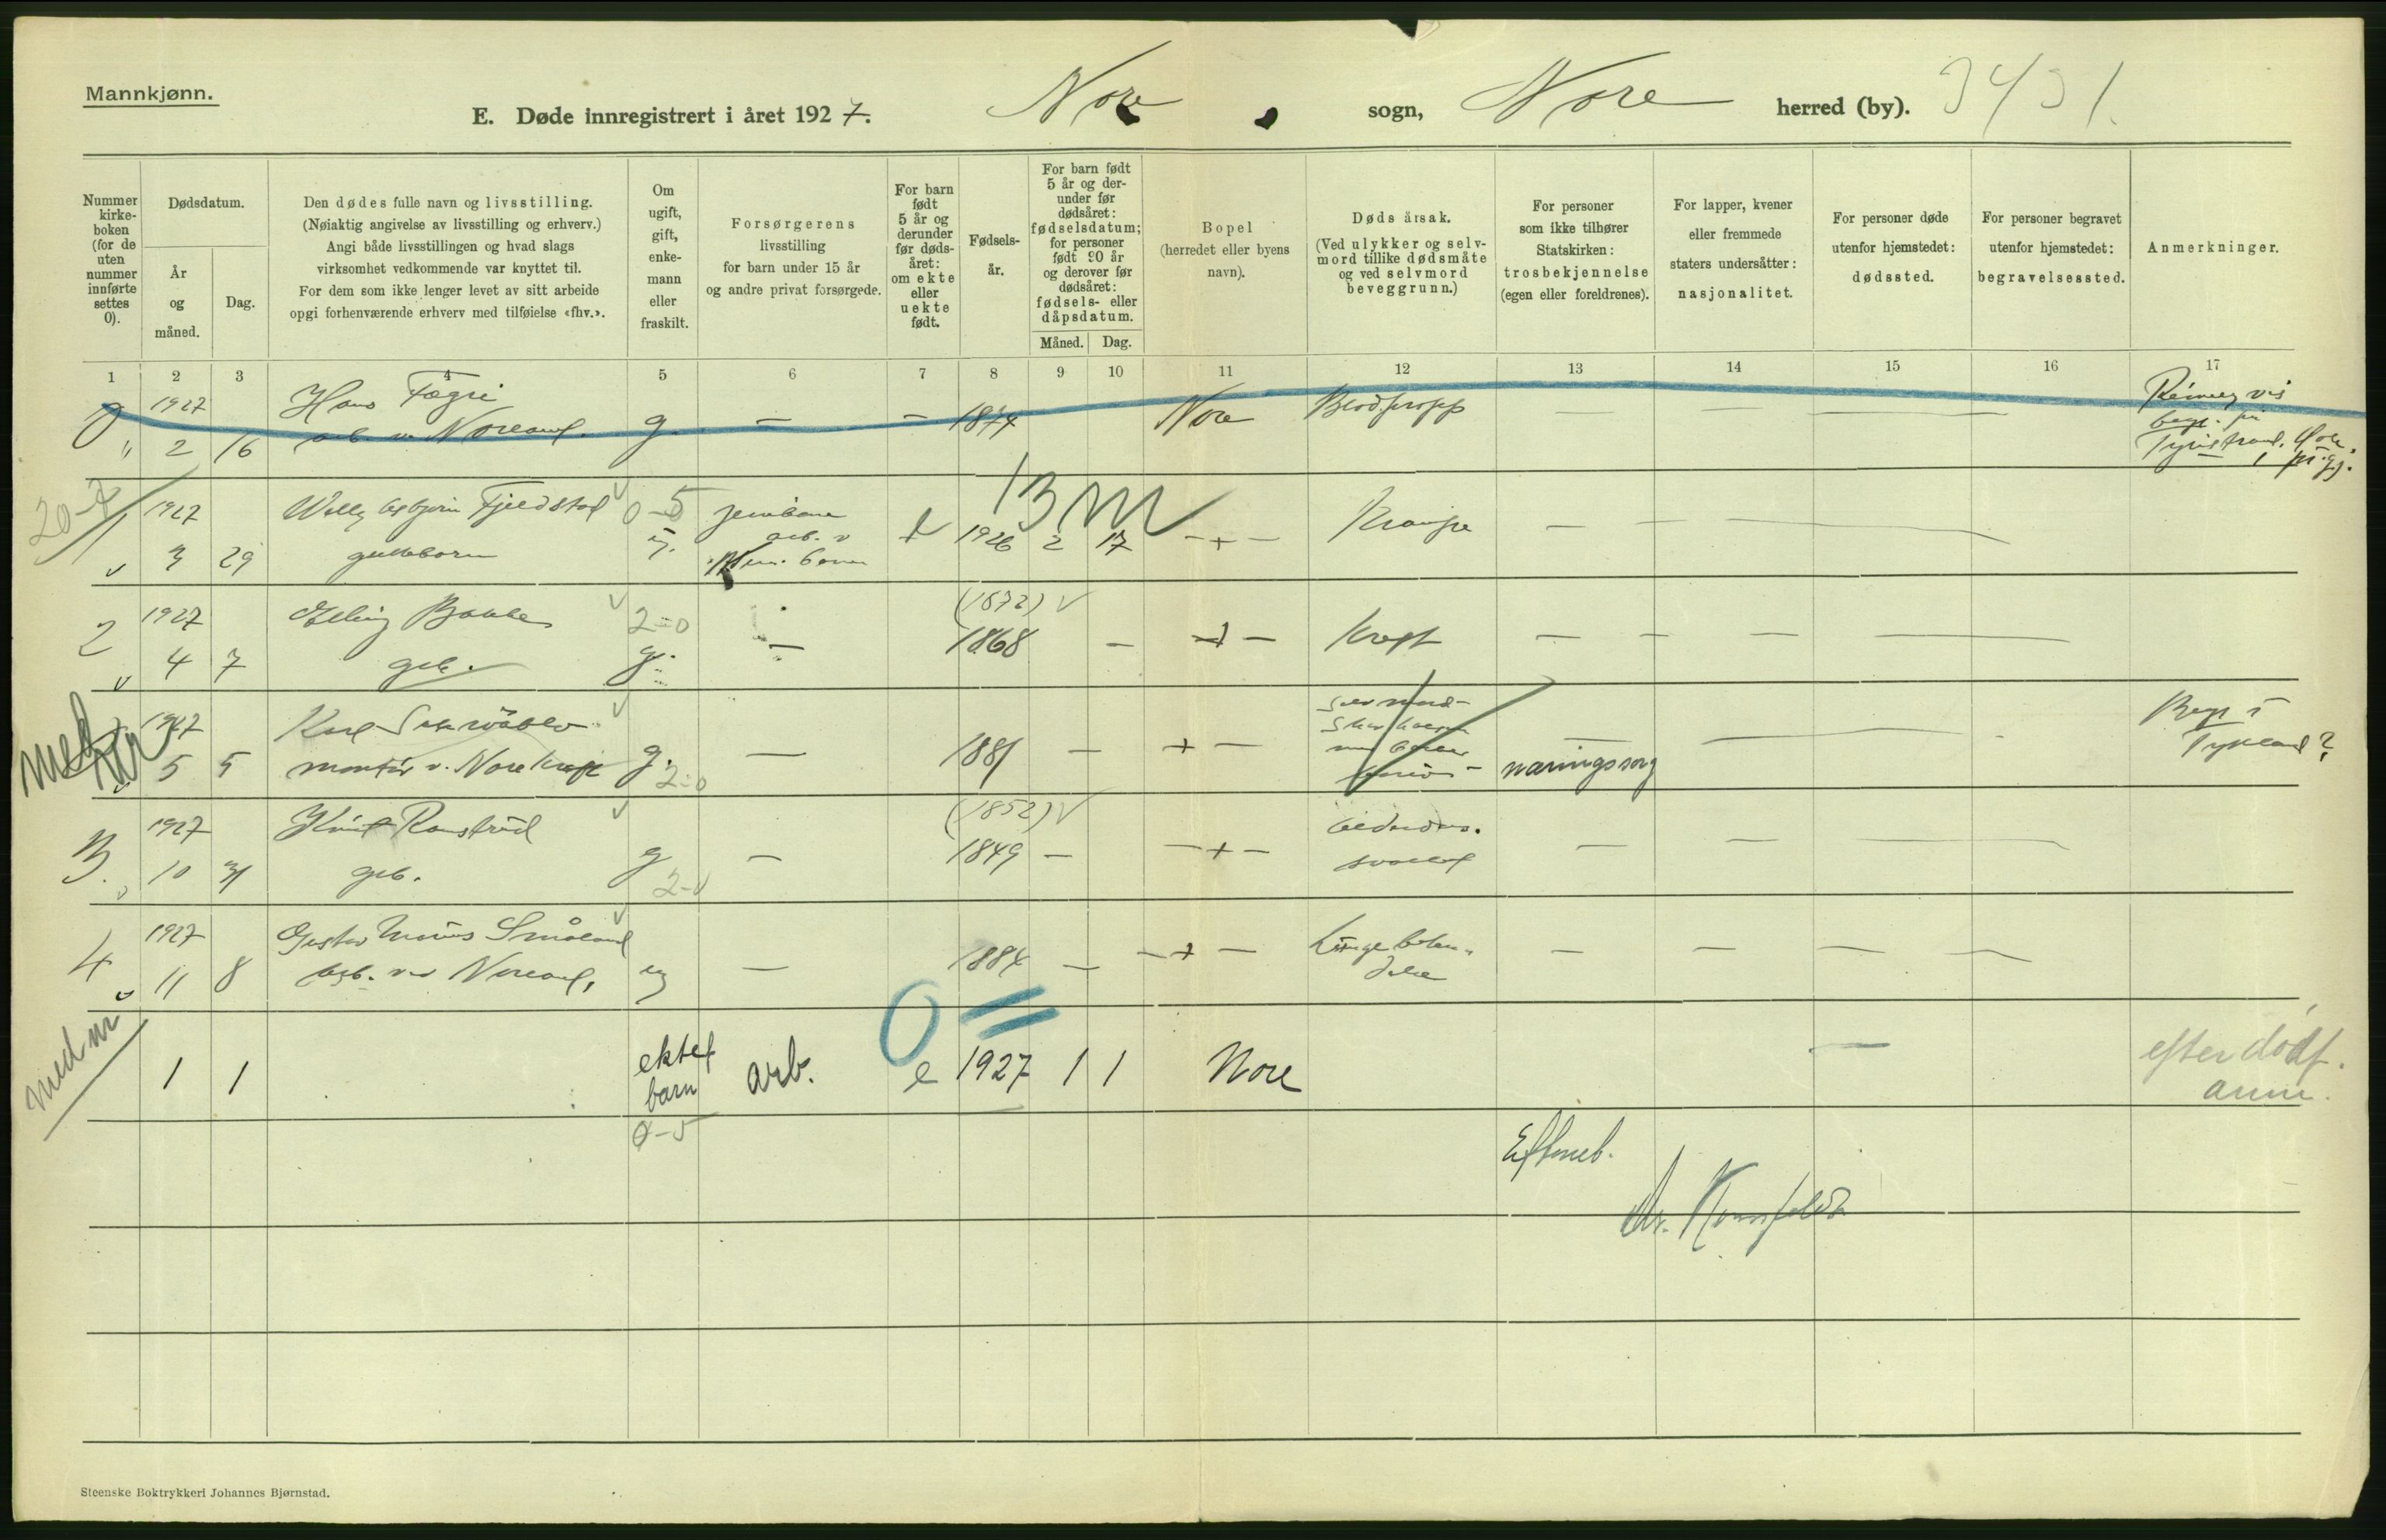 Mannkjønn.
E. Døde innregistrert i året 1927. Nore sogn, Nore herred (by). 3431.
Nummer
kirke-
boken
(for de
uten
nummer
innførte
settes
0).
Dødsdatum.
År
og
måned.
Dag.
Den dødes fulle navn og livsstilling.
(Nøiaktig angivelse av livsstilling og erhverv.)
Angi både livsstillingen og hvad slags
virksomhet vedkommende var knyttet til.
For dem som ikke lenger levet av sitt arbeide
opgi forhenværende erhverv med tilføielse «fhv.».
Om
ugift,
gift,
enke-
mann
eller
fraskilt.
Forsørgerens
livsstilling
for barn under 15 år
og andre privat forsørgede.
For barn
født
5 år og
derunder
før døds-
året:
om ekte
eller
uekte
født.
Fødsels-
år.
For barn født
5 år og der-
under før
dødsåret:
fødselsdatum;
for personer
født 90 år
og derover før
dødsåret:
fødsels- eller
dåpsdatum.
Måned. Dag.
Bopel
(herredet eller byens
navn).
Dødsårsak.
(Ved ulykker og selv-
mord tillike dødsmåte
og ved selvmord
beveggrunn.)
For personer
som ikke tilhører
Statskirken:
trosbekjennelse
(egen eller foreldrenes).
For lapper, kvener
eller fremmede
staters undersåtter:
nasjonalitet.
For personer døde
utenfor hjemstedet:
dødssted.
For personer begravet
utenfor hjemstedet:
begravelsessted.
Anmerkninger.
1 2 3 4 5 6 7 8 9 10 11 12 13 14 15 16 17
0 1927 Hans Fægri g. — — 1874 Nore Blodpropp
" 2 16 arb. v. Noreanl.
begr. på
Tyristrand, Hole,
20-7
1 1927 Willy Asbjørn Fjeldstad 0-5 13 m
v 3 29 guttebarn arb. v 1926 2 17 — + — —
2 1927 Elling 2-0 (1872) v
v 4 7 g. — 1868 — + — Kreft — — —
1927 Karl
5 5 montør v. Nore kraft g. 2-0 — 1881 — + — — næringssorg
Selvmord-
Begr. i
Tyskland?
3. 1927 Knut Ramstrud (1852) v
v 10 31 g 2-0 — 1849 — — + — — —
4 1927 Gustav Småland
v 11 8 arb. ved Noreanl. ug — 1884 — — + — Lungebeten-
delse
med nr
1 1 ektef
barn
0-5
arb. 0 e 1927 1 1 Nore —
efter dødf.
anm.
Efterseb.
Steenske Boktrykkeri Johannes Bjørnstad.